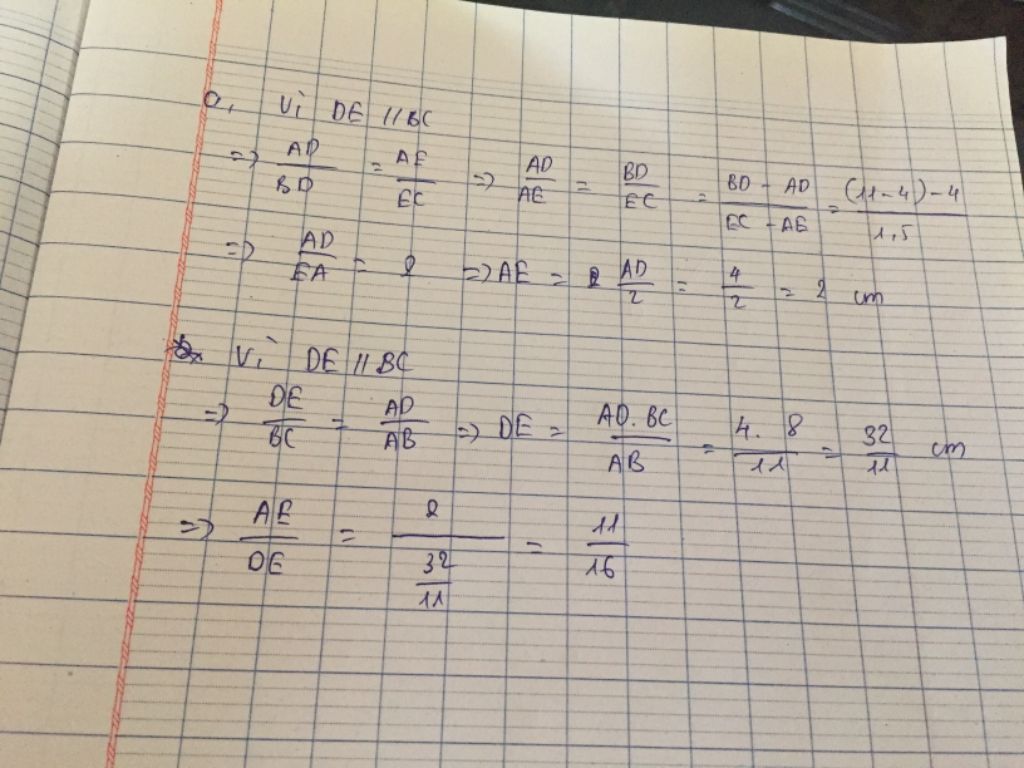 a, Vì DE // BC
=> AD/BD = AE/EC => AD/AE = BD/EC = (BD - AD)/(EC - AE) = ((11-4)-4)/1,5
=> AD/EA = 2 => AE = AD/2 = 4/2 = 2 cm
Vì DE // BC
=> DE/BC = AD/AB => DE = AD.BC/AB = 4.8/11 = 32/11 cm
=> AE/DE = 2/(32/11) = 11/16